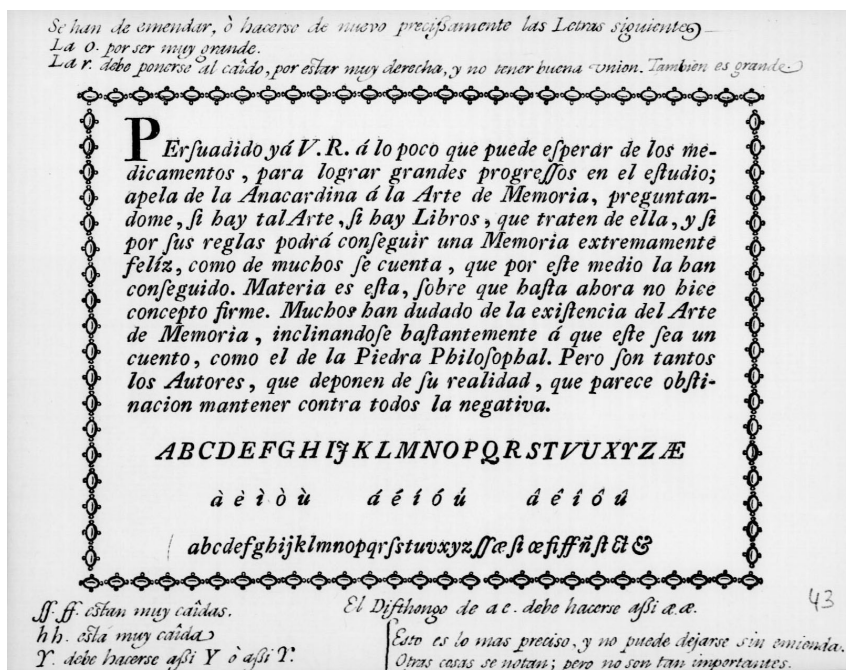 Se han de emendar, ò hacerse de nuevo precißamente las Letras siguientes
La o. por ser muy grande.
La r. debe ponerse al caîdo, por estar muy derecha, y no tener buena vnion. Tambien es grande.
PErſuadido yá V. R. á lo poco que puede eſperar de los me-
dicamentos, para lograr grandes progreſſos en el eſtudio;
apela de la Anacardina á la Arte de Memoria, preguntan-
dome, ſi hay tal Arte, ſi hay Libros, que traten de ella, y ſi
por ſus reglas podrá conſeguir una Memoria extremamente
felíz, como de muchos ſe cuenta, que por eſte medio la han
conſeguido. Materia es eſta, ſobre que haſta ahora no hice
concepto firme. Muchos han dudado de la exiſtencia del Arte
de Memoria, inclinandoſe baſtantemente á que eſte ſea un
cuento, como el de la Piedra Philoſophal. Pero ſon tantos
los Autores, que deponen de ſu realidad, que parece obſti-
nacion mantener contra todos la negativa.
ABCDEFGHIJKLMNOPQRSTVUXYZÆ
à è ì ò ù á é í ó ú â ê î ô û
abcdefghijklmnopqrſstuvxyzſſæſiœfiffñſt&&
ſſ. ff. eſtan muy caîdas.
hh. eſtá muy caîda
Y. debe hacerse aſsi Y ò aſsi Y.
El Difthongo de ae. debe hacerse aſsi æ. æ.
Eſto es lo mas preciso, y no puede dejarse sin emienda.
Otras cosas se notan; pero no son tan importantes.
43